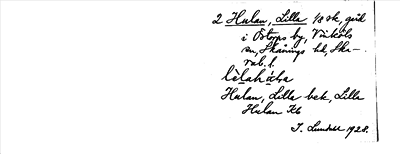 2 Hulan, Lilla 1/8 sk, gård
i Östorps by, Vinköls
sn, Skånings hd, Ska-
rab. l.
Hulan, Lilla bek, Lilla
Hulan Kb
I. Lundahl 1928.